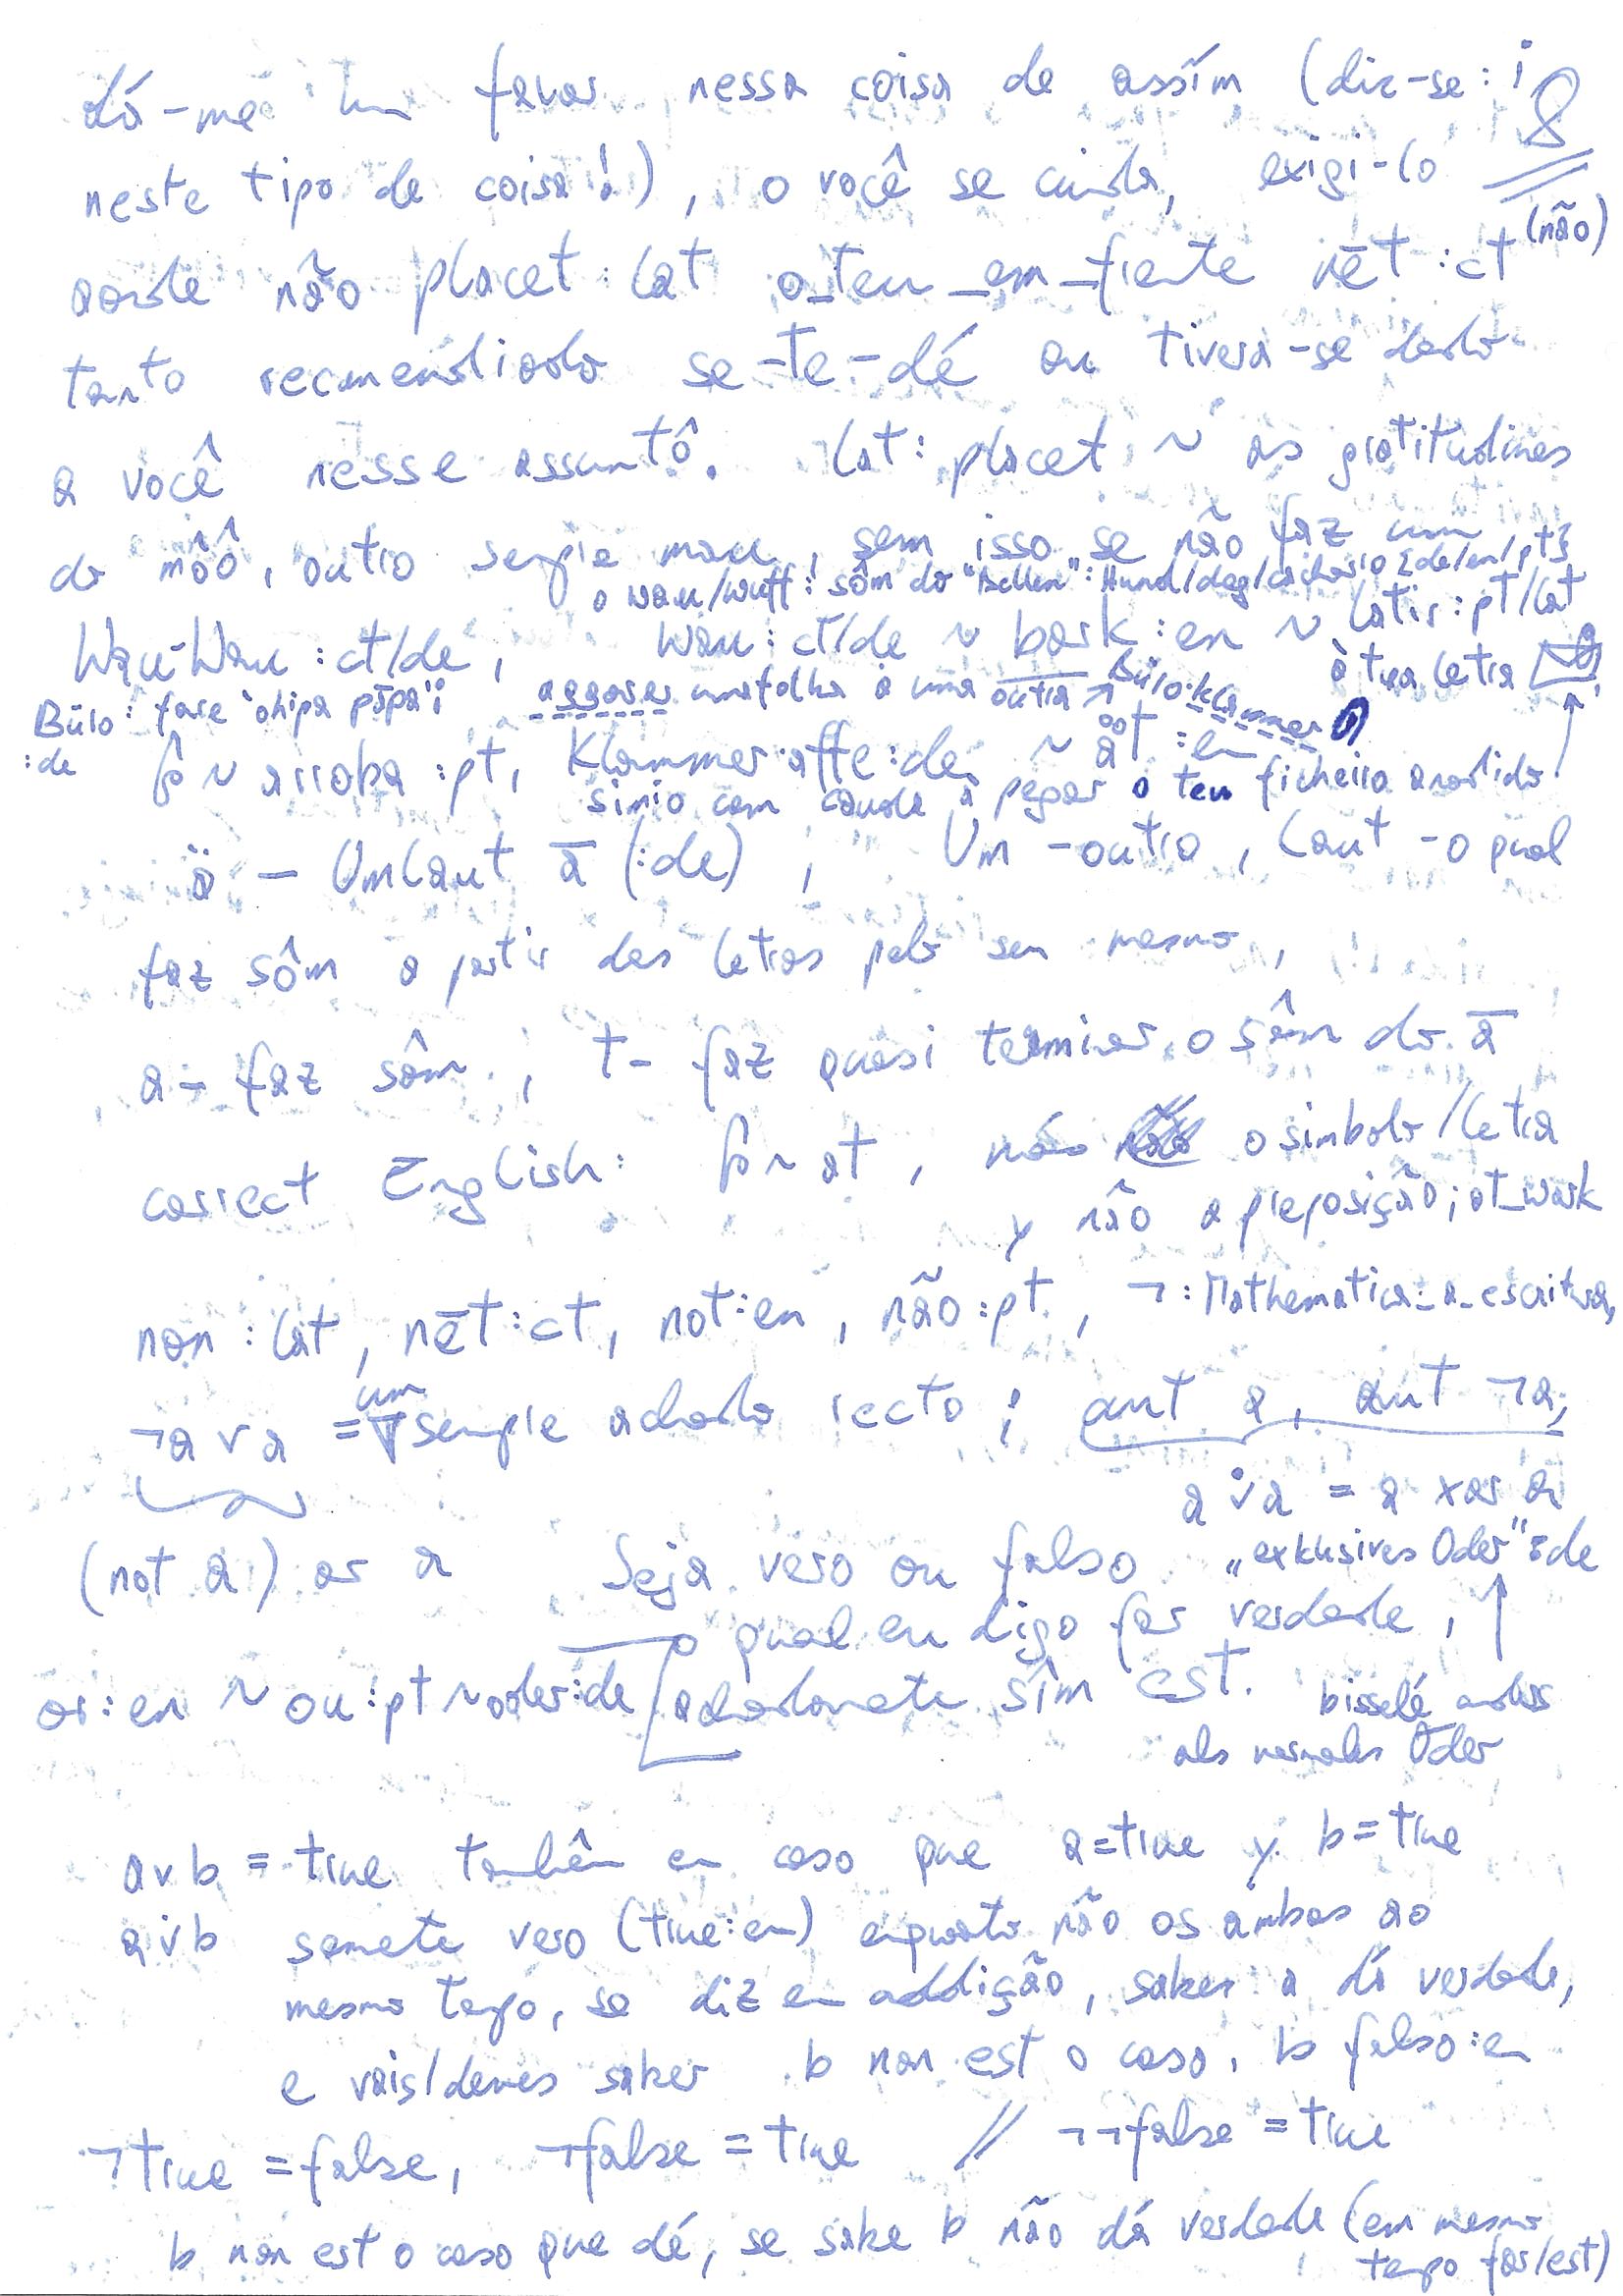 dá-me um favor nessa coisa de assím (diz-se: ¡ 8
neste tipo de coisa!), o você se cuida, exigi-lo
aonde não placet:lat o_teu_em_frente nēt:ct (não)
tanto recomendiado se-te-dé ou tivera-se dado
a você nesse assuntô. lat: placet ~ as gratitudines
do môô, outro sempre mau, sem isso se não faz um
o wau/wuff: sôm do "Bellen": Hund/dog/cachorro {de/en/pt}
Wau-Wau:ct/de, Wau:ct/de ~ bark:en ~ latir:pt/lat
à tua letra
Büro: fare `ohipa pāpa'i agarrar uma folha a uma outria Büro:klammer
:de @ ~ arroba:pt, Klammer:affe:de, ~ ät:en
simio com cauda a pegar o teu ficheiro anadido
ä – Umlaut ā (:de), Um -outro, laut -o qual
faz sôm a partir das letras pelo seu mesmo,
a- faz sôm, t- faz quasi terminar o sôm do ā
correct English: @ ~ at, o simbolo/letra
y não a preposição; at_work
non:lat, nēt:ct, not:en, não:pt, ¬:Mathematica_a_escritura,
um
¬a v a = sempre achado recto; aut a, aut ¬a;
a v̇ a = a xor a
(not a) or a Seja vero ou falso „exklusives Oder":de
o qual eu digo for verdade,
or:en ~ ou:pt ~ oder:de achadamete sîm est. bisselé anders
als normales Oder
a v b = true também em caso que a=true y b=true
a v̇ b somete vero (true:en) enquanto não os ambos ao
mesmo tempo, se diz em addição, sabes a dá verdade,
e vais/deves saber b non est o caso, b falso:en
¬true = false, ¬false = true // ¬¬false = true
b non est o caso que dé, se sabe b não dá verdade (em mesmo
tempo for/est)